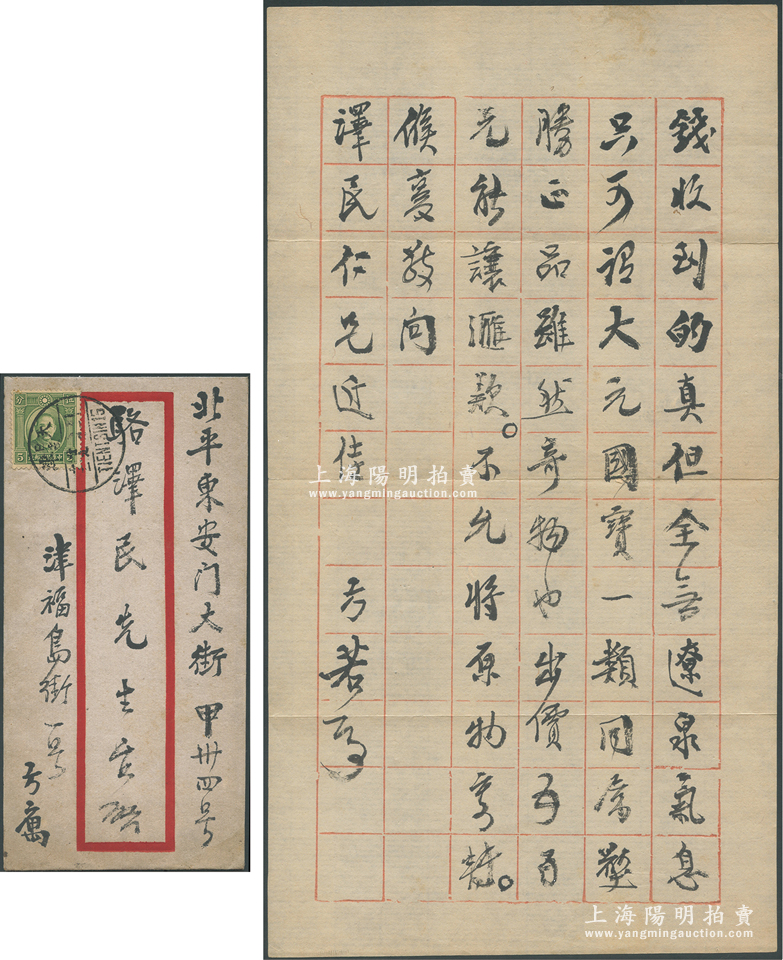 錢收到的真但全無遼泉氣息
只可謂大元國寶一類同屬壓
勝正品雖然奇物也出價五百
元能讓匯款。不允將原物寄
候爰敬向
澤民仁兄近佳
方若
北平東安门大街甲卅四号
駱澤民先生台啓
津福島街一号
方寓
分
5
TIENTSIN 15
上海陽明拍賣
www.yangmingauction.com
上海陽明拍賣
www.yangmingauction.com